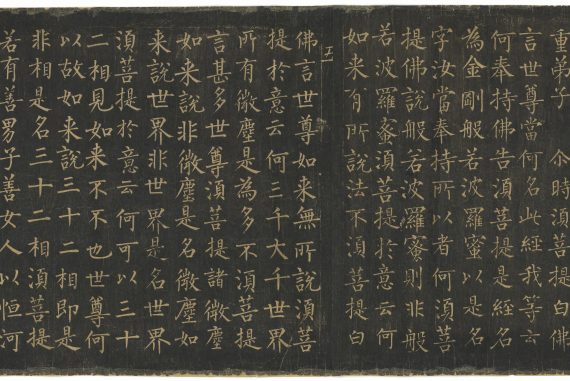 重弟子 尒時須菩提白佛
言世尊當何名此經我等云
何奉持佛告須菩提是經名
為金剛般若波羅蜜以是名
字汝當奉持所以者何須菩
提佛說般若波羅蜜則非般
若波羅蜜須菩提於意云何
如来有所說法不須菩提白
佛言世尊如来無所說須菩
提於意云何三千大千世界
所有微塵是為多不須菩提
言甚多世尊須菩提諸微塵
如来說非微塵是名微塵如
来說世界非世界是名世界
須菩提於意云何可以三十
二相見如来不不也世尊何
以故如来說三十二相即是
非相是名三十二相須菩提
若有善男子善女人以恒河